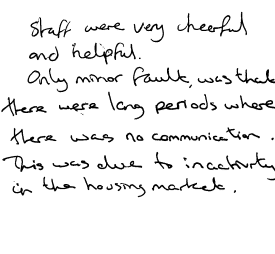 Staff were very cheerful
and helpful.
Only minor fault, was that
there were long periods where
there was no communication.
This was due to inactivity
in the housing market.